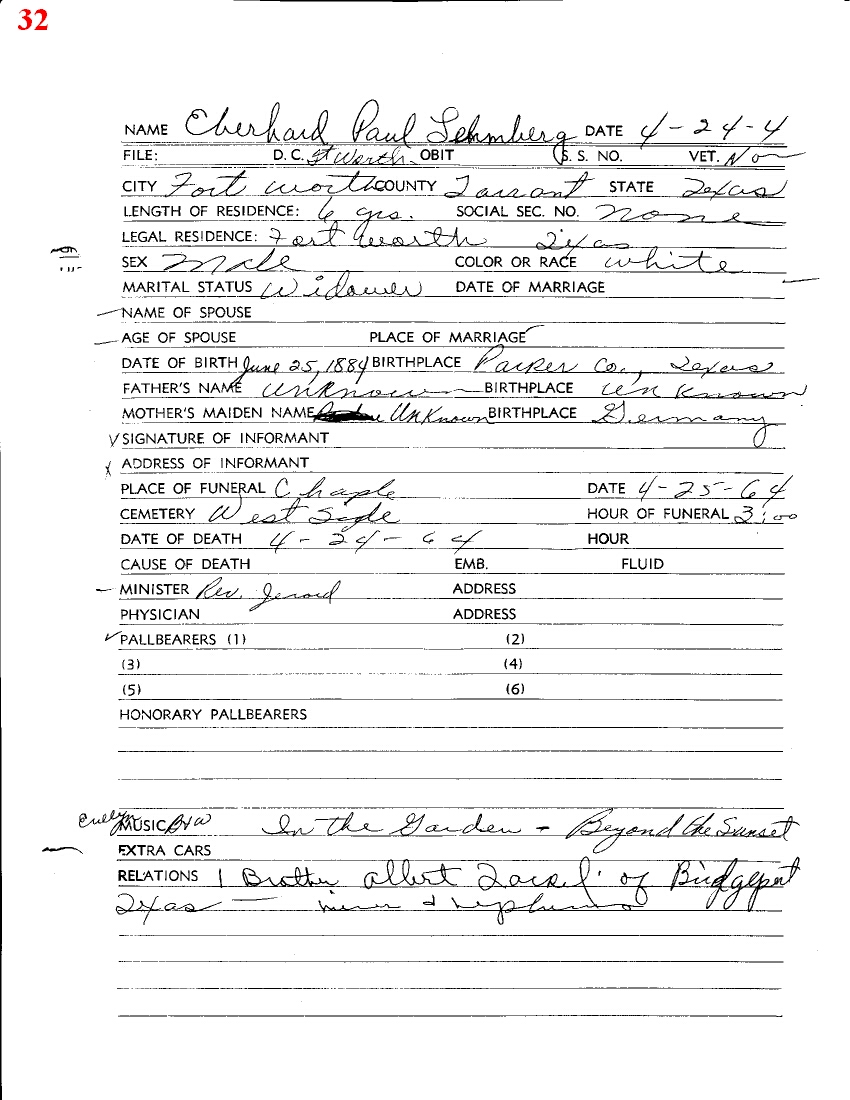 32
NAME Eberhard Paul Lehmberg DATE 4-24-4
FILE: D.C. Ft Worth OBIT S. S. NO. VET. No
CITY Fort Worth COUNTY Tarrant STATE Texas
LENGTH OF RESIDENCE: 6 yrs. SOCIAL SEC. NO. none
LEGAL RESIDENCE: Fort Worth Texas
SEX Male COLOR OR RACE white
MARITAL STATUS Widower DATE OF MARRIAGE
NAME OF SPOUSE
AGE OF SPOUSE PLACE OF MARRIAGE
DATE OF BIRTH June 25, 1884 BIRTHPLACE Parker Co., Texas
FATHER'S NAME Unknown BIRTHPLACE Unknown
MOTHER'S MAIDEN NAME UnKnown BIRTHPLACE Germany
SIGNATURE OF INFORMANT
ADDRESS OF INFORMANT
PLACE OF FUNERAL Chaple DATE 4-25-64
CEMETERY West Side HOUR OF FUNERAL 3:00
DATE OF DEATH 4-24-64 HOUR
CAUSE OF DEATH EMB. FLUID
MINISTER Rev. Jerard ADDRESS
PHYSICIAN ADDRESS
PALLBEARERS (1) (2)
(3) (4)
(5) (6)
HONORARY PALLBEARERS
Evelyn MUSIC In the Garden - Beyond the Sunset
EXTRA CARS
RELATIONS 1 Brother albert of Bridgeport
Texas —